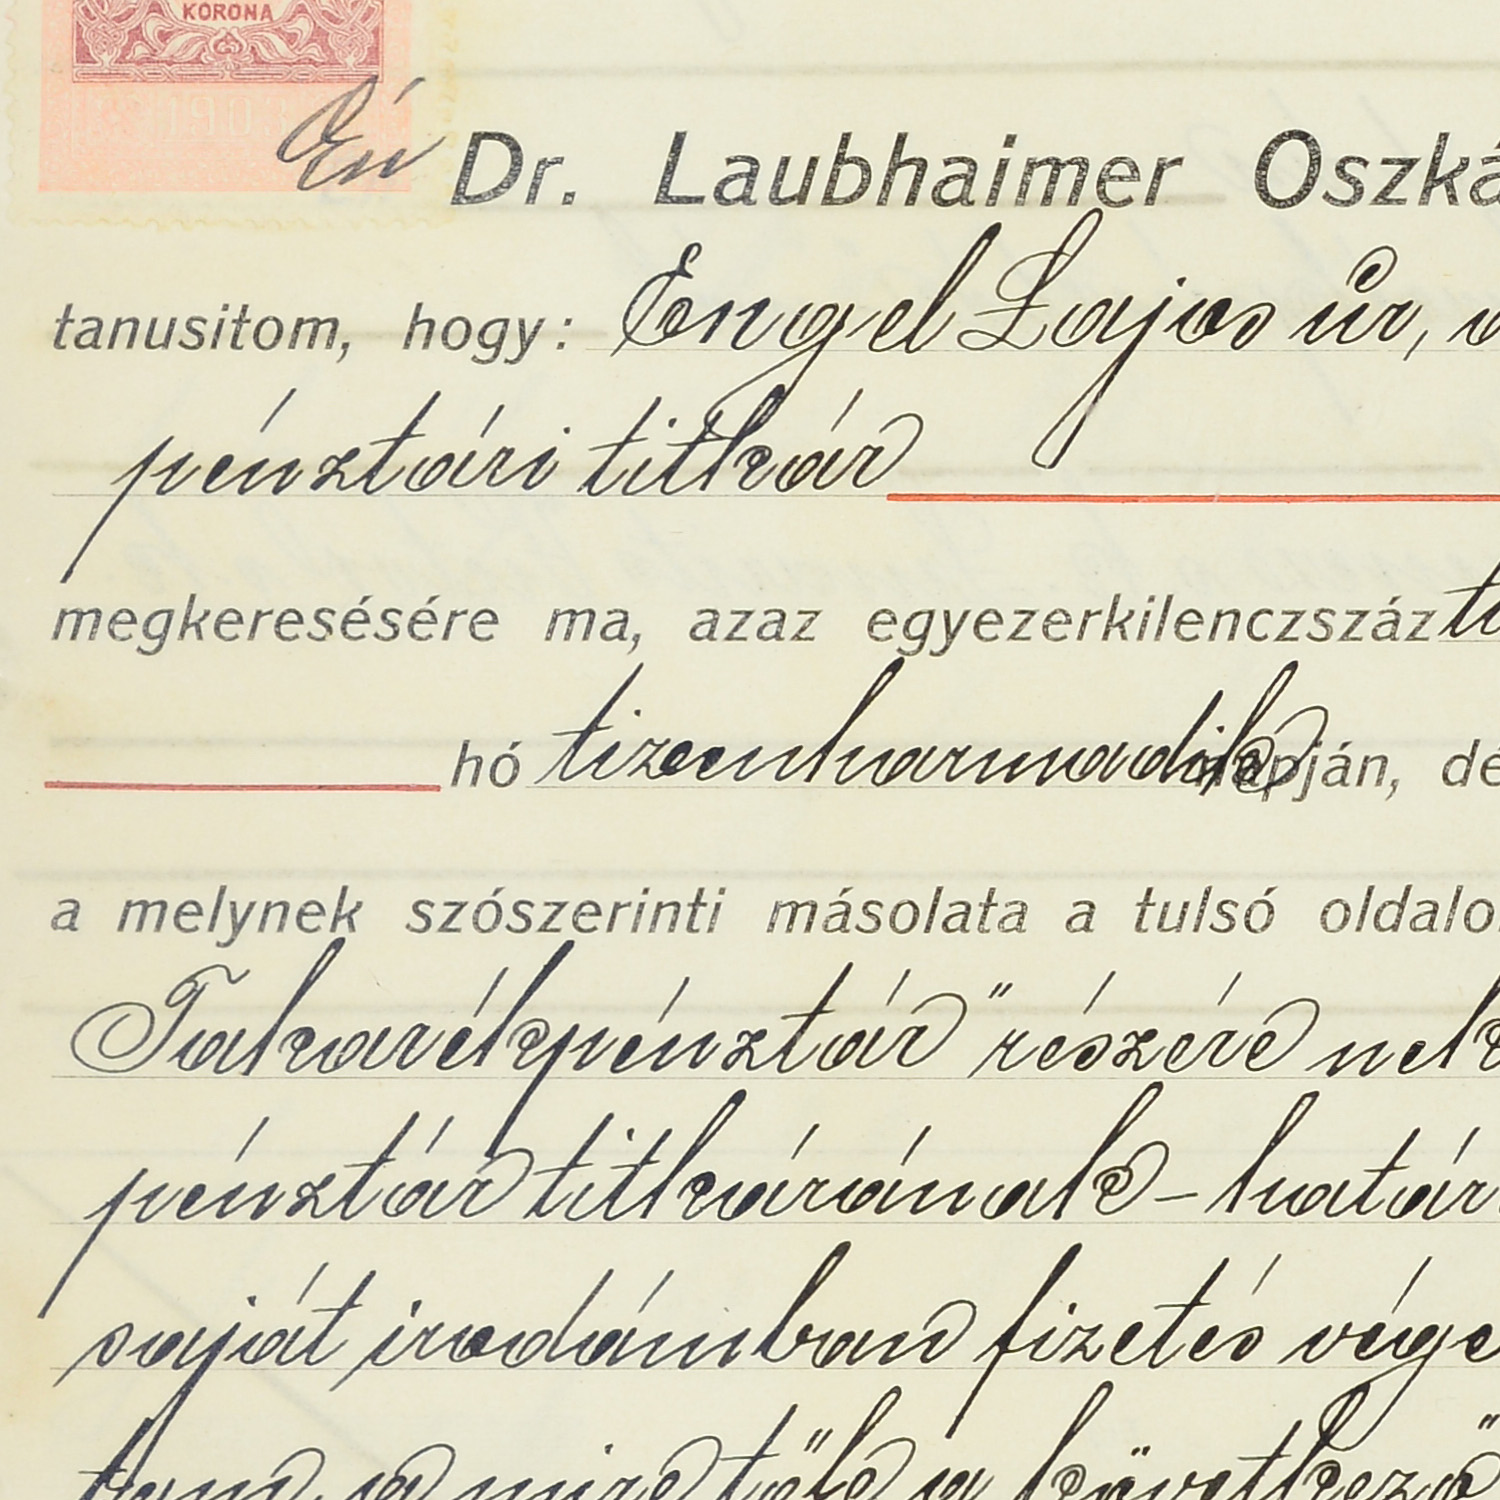 KORONA
Én Dr. Laubhaimer Oszká
tanusitom, hogy: Engel Lajos úr,
pénztári titkár
megkeresésére ma, azaz egyezerkilenczszáz ti
hó tizenharmadik napján, dé
a melynek szószerinti másolata a tulsó oldalo
Takarékpénztár" részére nek
pénztár titkárának - határ
saját irodámban fizetés vége
tam, a mire tőle a következő